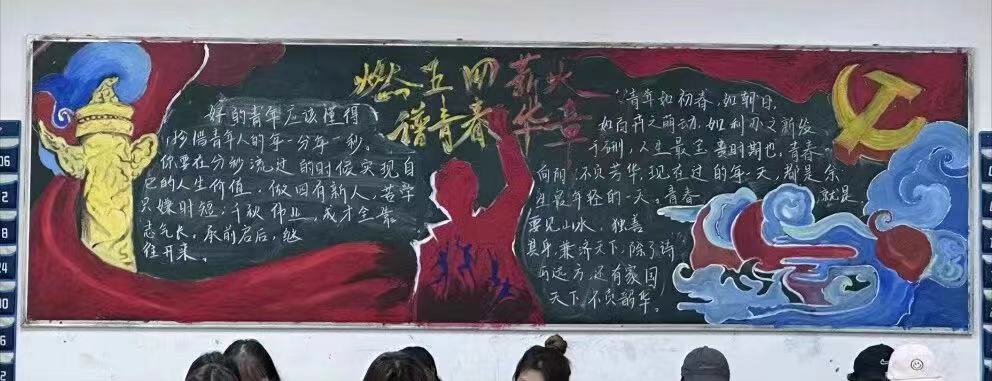 燃五四薪火
谱青春华章
好的青年应该懂得
珍惜青年人的每一分每一秒。
你要在分秒流过的时候实现自
己的人生价值，做四有新人，苦学
只嫌时短；千秋伟业，成才全靠
志气长。承前启后，继
往开来。
青年如初春，如朝日，
如百卉之萌动，如利刃之新发
于硎，人生最宝贵时期也。青春
向阳，不负芳华，现在过的每一天，都是余
生最年轻的一天。青春 就是
要见山水，独善
其身，兼济天下，除了诗
与远方，还有家国
天下，不负韶华。
06
2
8
24
10
6
2